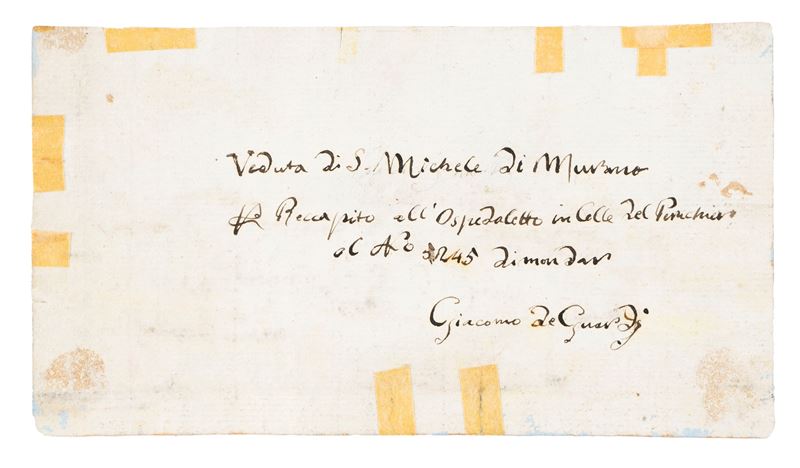 Veduta di S. Michele di Murano
Reccapito all'Ospedaletto in Calle del Peruchier
al No 5245 dimandar
Giacomo de Guardi